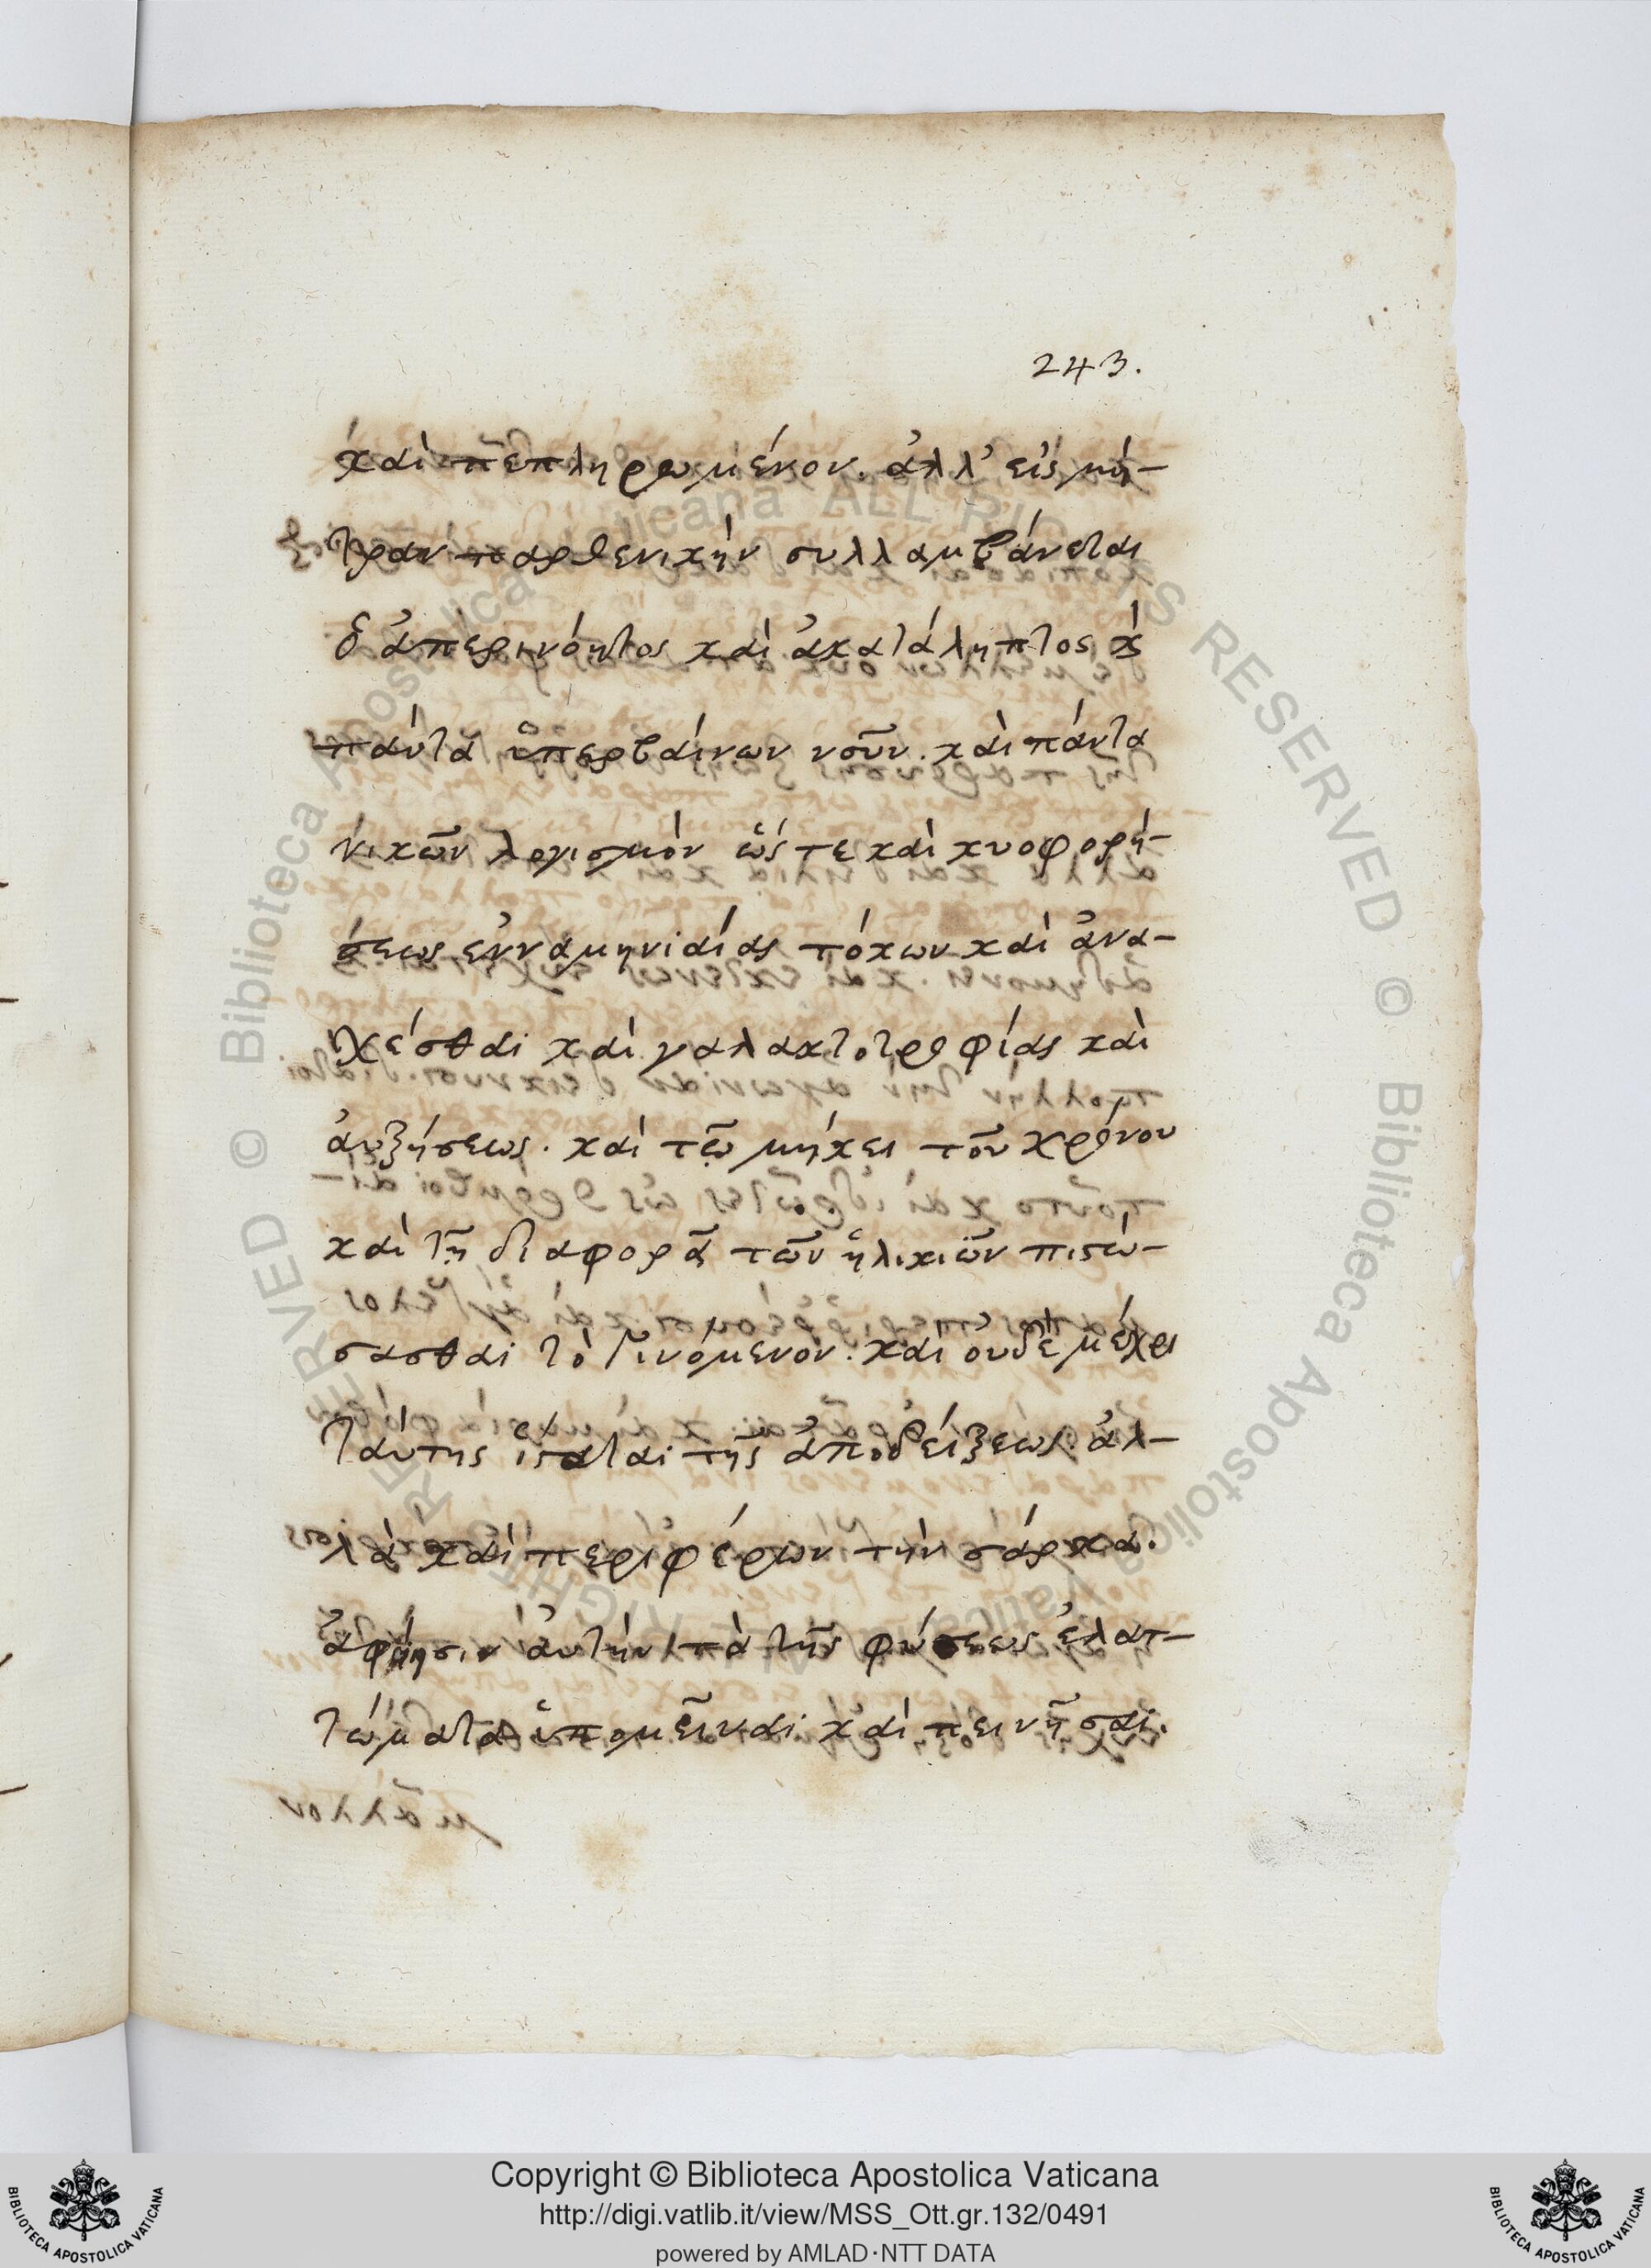 243.
καὶ πεπληρωμένον. ἀλλ' εἰς μή-
τραν παρθενικὴν συλλαμβάνεται
ὁ ἀπερινόητος καὶ ἀκατάληπτος κ̀
πάντα ὑπερβαίνων νοῦν. καὶ πάντα
νικῶν λογισμὸν ὥς τε καὶ κυοφορή-
σεως ἐνναμηνιαίας τόκων καὶ ἀνα-
χέσθαι καὶ γαλακτοτροφίας καὶ
ἀυξήσεως. καὶ τῷ μήκει τοῦ χρόνου
καὶ τῇ διαφορᾷ τῶν ἡλικιῶν πιστώ-
σασθαι τὸ γινόμενον. καὶ οὐδὲ μέχρι
ταύτης ἵσταται τῆς ἀποδείξεως. ἀλ-
λὰ καὶ περιφέρων τὴν σάρκα.
ἀφίησιν ἀυτὴν τὰ τῆς φύσεως ἐλατ-
τώματα ὑπομεῖναι καὶ πεινῆσαι.
Copyright © Biblioteca Apostolica Vaticana
http://digi.vatlib.it/view/MSS_Ott.gr.132/0491
powered by AMLAD·NTT DATA
BIBLIOTECA APOSTOLICA VATICANA
BIBLIOTECA APOSTOLICA VATICANA